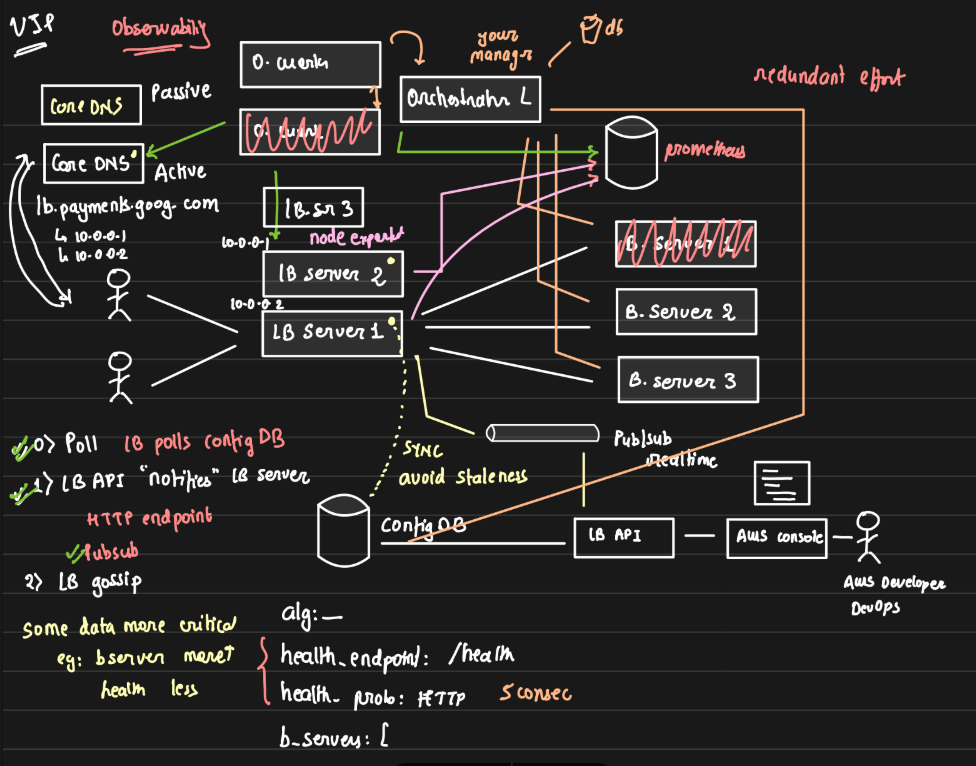 VIP
Observability
O. work
your
manager
db
redundant effort
Core DNS
Passive
Orchestrator L
Core DNS
Active
prometheus
lb.payments.goog.com
↳ 10.0.0.1
↳ 10.0.0.2
LB.sr 3
10.0.0.1
node exporter
LB server 2
10.0.0.2
LB Server 1
B. Server 1
B. Server 2
B. server 3
0> Poll LB polls config DB
1> LB API "notifies" LB server
HTTP endpoint
Pubsub
2> LB gossip
SYNC
avoid staleness
Pub/sub
realtime
Config DB
LB API
AWS console
AWS Developer
DevOps
Some data more critical
eg: bserver more↑
health less
alg: __
health_endpoint: /health
health_prob: HTTP 5 consec
b_servers: [